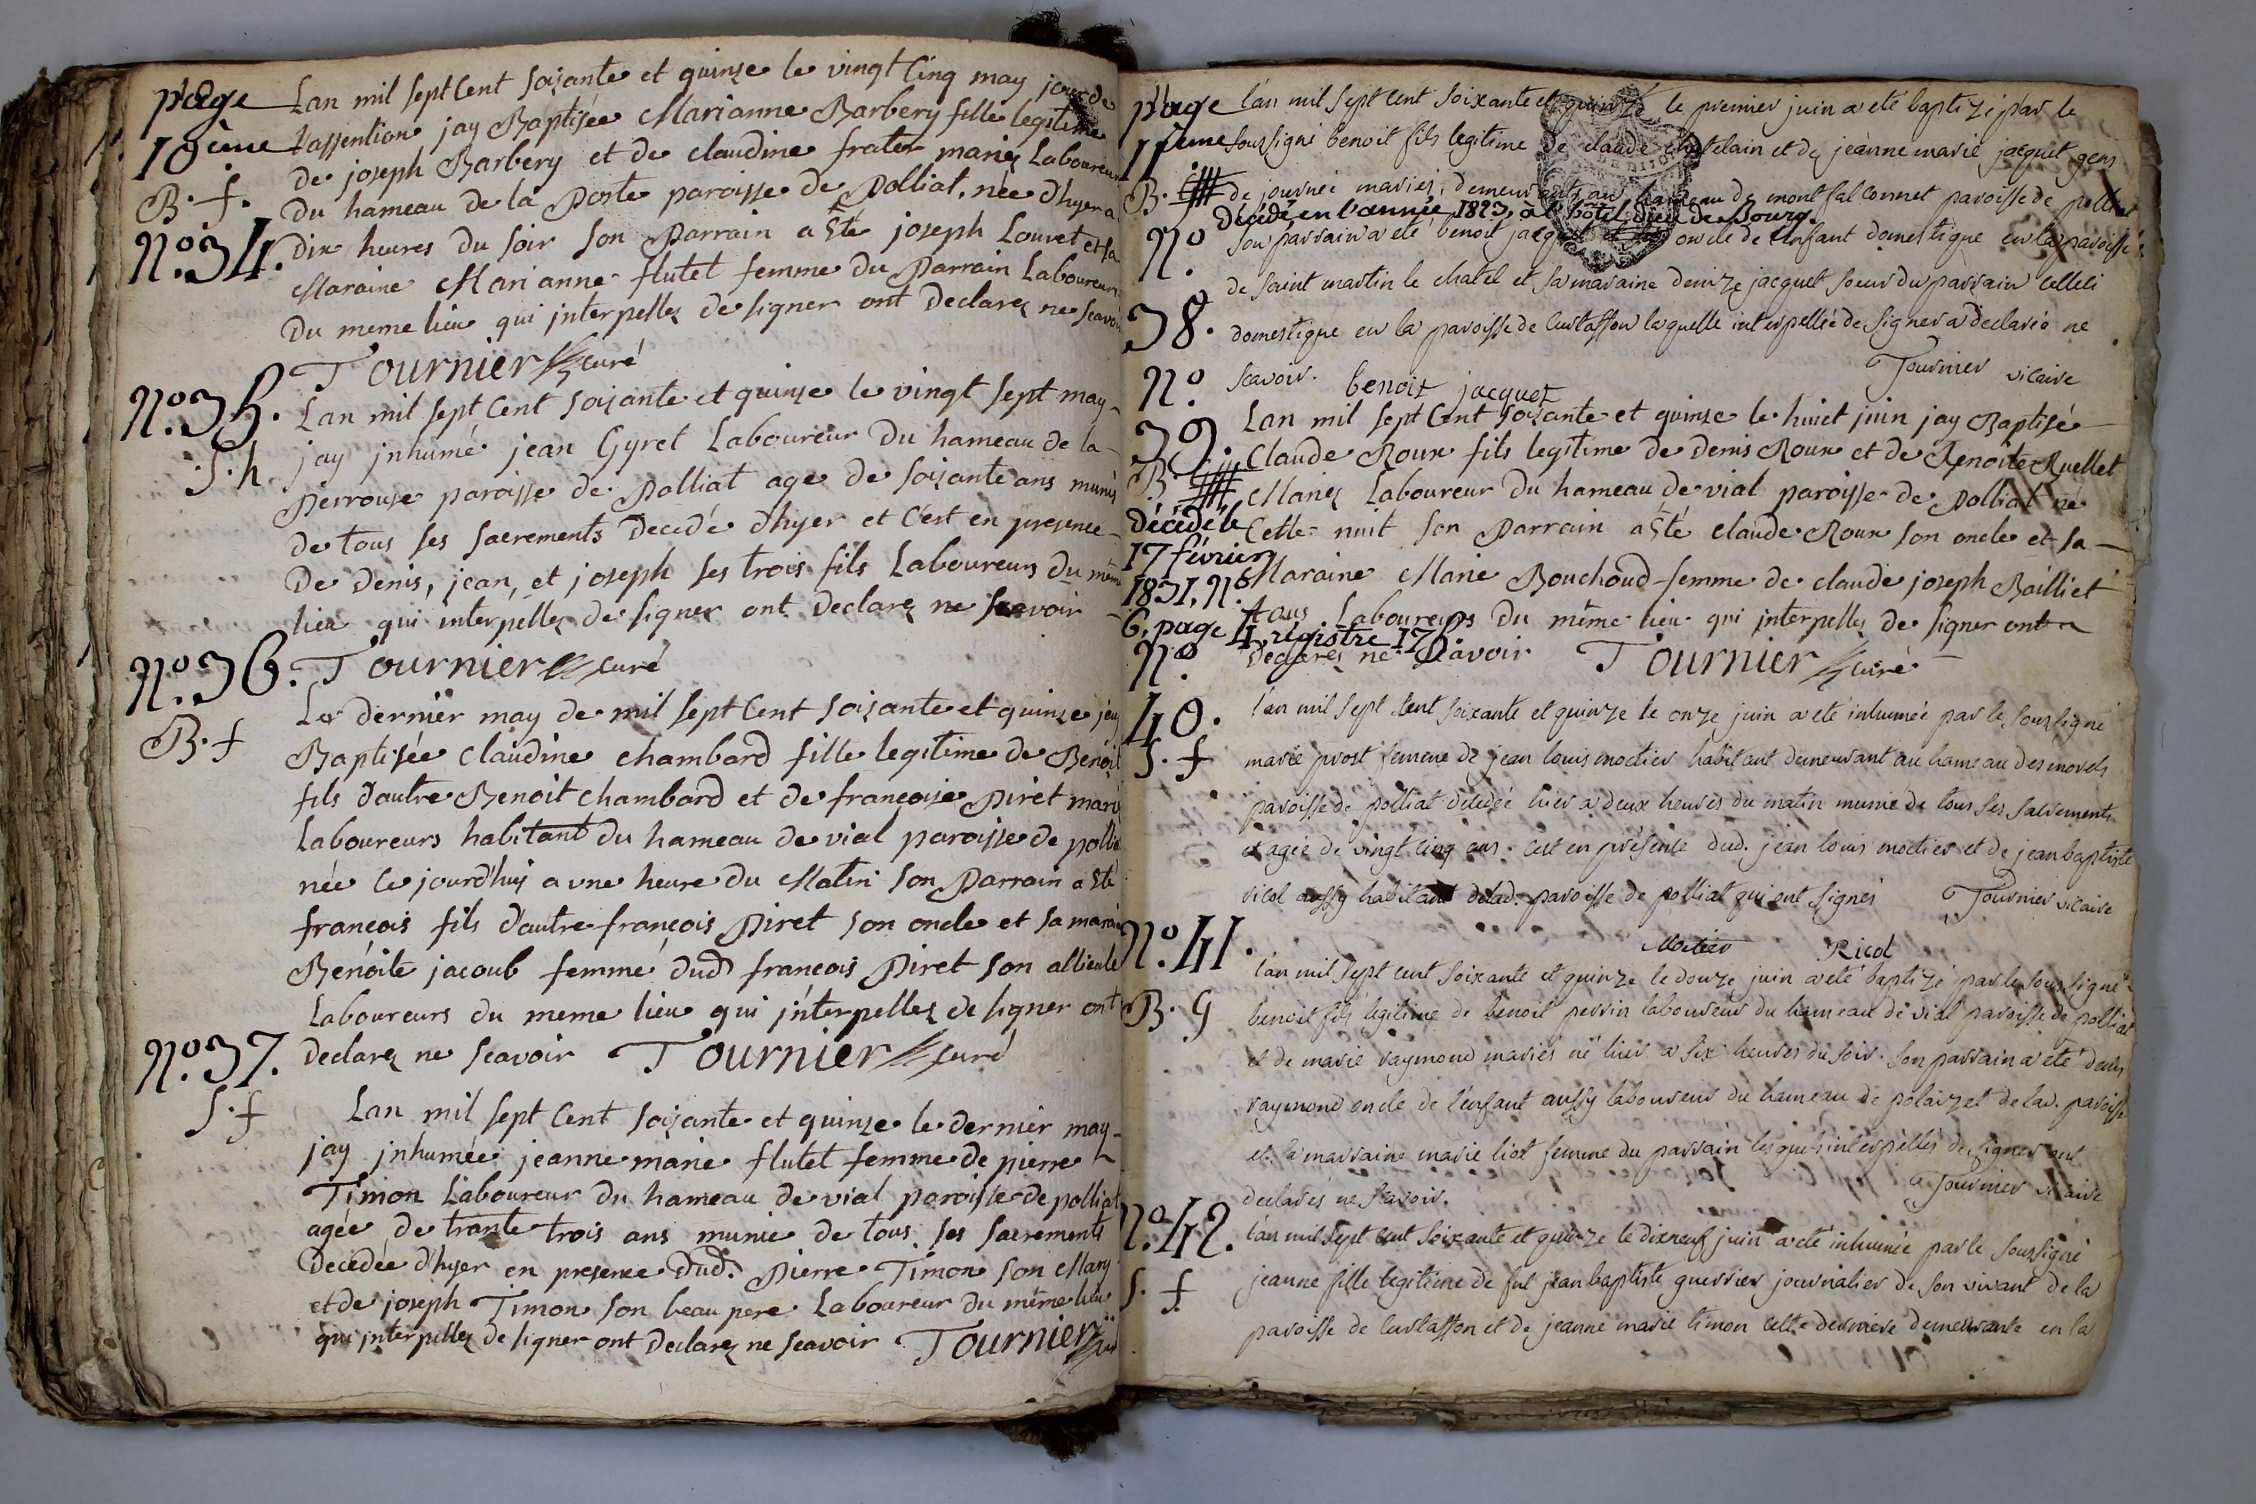 page
10ème
B. f.
N.º 34.
Lan mil sept Cent soixante et quinze le vingt Cinq may jour de
Lassention jay Baptisée Marianne Barbery fille legitime
de joseph Barbery et de claudine frater mariez Laboureurs
du hameau de la Poste paroisse de Polliat, née d'hyer a
dix heures du soir son Parrain a Eté joseph Louvet et sa
Maraine Marianne flutet femme du Parrain Laboureurs
du meme lieu qui interpellez de signer ont Declarez ne scavoir
Tournier curé
N.º 35.
S. h.
Lan mil sept Cent soixante et quinze le vingt sept may
jay jnhumé jean Gyret Laboureur du hameau de la
Perrouse paroisse de Polliat age de soixante ans munis
de tous ses sacrements Decedé d'hyer et c'est en presence
De Denis, jean, et joseph ses trois fils Laboureurs du même
lieu qui interpellez de signer ont Declarez ne scavoir
Tournier curé
N.º 36.
B. f
Le dernier may de mil sept Cent soixante et quinze jay
Baptisée claudine chambard fille legitime de Benoit
fils d'autre Benoit chambard et de françoise Piret mariez
Laboureurs habitant du hameau de vial paroisse de polliat
née ce jourd'huy a une heure du Matin son Parrain a Eté
françois fils d'autre françois Piret son oncle et sa maraine
Benoite jacoub femme dud françois Piret son allieule
Laboureurs du meme lieu qui jnterpellez de signer ont
declarez ne scavoir Tournier curé
N.º 37.
S. f
Lan mil sept Cent soixante et quinze le dernier may
jay jnhumée jeanne marie flutet femme de pierre
Timon Laboureur du hameau de vial paroisse de polliat
agée de trante trois ans munie de tous ses sacrements
Decedée d'hyer en presence dud. Pierre Timon son Mary
et de joseph Timon son beau pere Laboureur du même lieu
qui jnterpellez de signer ont Declarez ne scavoir Tournier curé
page
11ème
B. g
N.º
38.
l'an mil sept cent soixante et quinze le premier juin a eté baptizé par le
soussigné benoit fils legitime de claude chatelain et de jeanne marie jacquet gens
de journée mariez, demeurants au hameau de mont falconnet paroisse de polliat
décédé en l'année 1823, à l'hôtel dieu de Bourg.
son parrain a eté benoit jacquet oncle de l'enfant domestique en la paroisse
de saint martin le chatel et sa maraine denize jacquet soeur du parrain celleci
domestique en la paroisse de curtasson laquelle interpellée de signer a declarée ne
scavoir. benoit jacquet Tournier vicaire
N.º
39.
B. g
Lan mil sept Cent soixante et quinze le huict juin jay Baptisé
Claude Roux fils legitime de Denis Roux et de Benoite Ruellet
Mariez Laboureur du hameau de vial paroisse de Polliat ne
Cette nuit son Parrain a Eté claude Roux son oncle et sa
Maraine Marie Bouchoud femme de claude joseph Bailliet
tous Laboureurs du même lieu qui interpellez de signer ont
Declarez ne scavoir Tournier curé
Décédé le
17 février
1831, N.º
6, page 4, registre
N.º
40.
S. f
l'an mil sept cent soixante et quinze le onze juin a eté inhumée par le soussigné
marie prost femme de jean louis moctier habitant demeurant au hameau des morels
paroisse de polliat decedée hier a deux heures du matin munie de tous ses sacrements
et agée de vingt cinq ans. c'est en présence dud. jean louis moctier et de jean baptiste
ricol aussy habitant delad. paroisse de polliat qui ont signés Tournier vicaire
Moctier Ricol
N.º 41.
B. g
l'an mil sept cent soixante et quinze le douze juin a eté baptizé par le soussigné
benoit fils legitime de benoit perrin laboureur du hameau de vial paroisse de polliat
et de marie raymond mariés né hier a six heures du soir. son parrain a eté denis
raymond oncle de l'enfant aussy laboureur du hameau de polaizet de lad. paroisse
et la marraine marie liot femme du parrain lesquels interpellés de signer ont
declarés ne scavoir. Tournier vicaire
N.º 42.
S. f
l'an mil sept cent soixante et quinze le dixneuf juin a eté inhumée par le soussigné
jeanne fille legitime de fut jean baptiste guerrier journalier de son vivant de la
paroisse de curtasson et de jeanne marie timon cette derniere demeurante en la